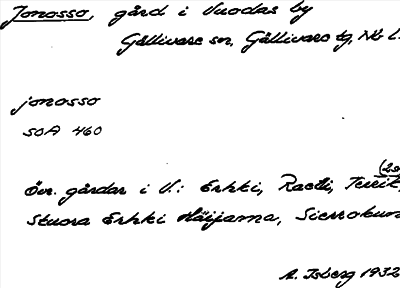 Jonosso, gård i Vuodas by
Gällivare sn, Gällivare tg, Nb L.
jonosso
SOA 460
(2s
Övr. gårdar i V.: Erkki, Raetti,
Stuora Erkki Häijama, Sierrokun
A. Isberg 1932